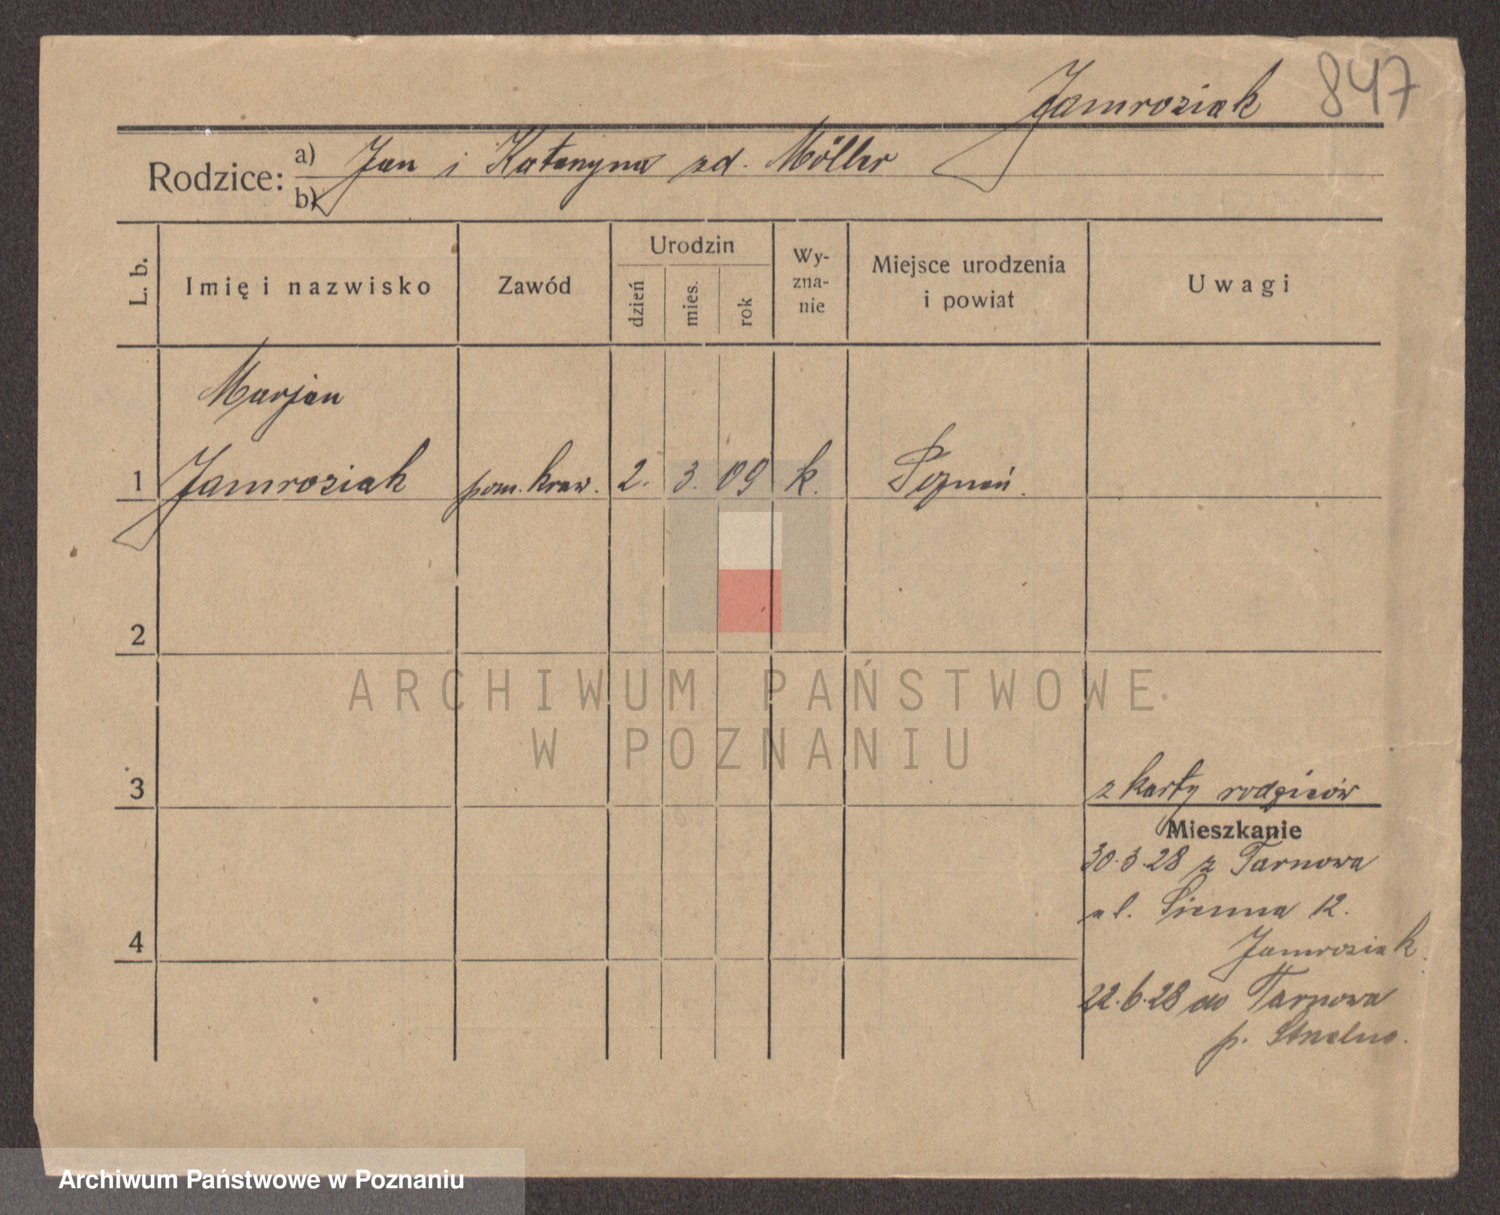 Jamroziak 847
Rodzice: a) Jan i Katarzyna zd. Möller
b)
L. b.
Imię i nazwisko
Zawód
Urodzin
dzień
mies.
rok
Wy-
zna-
nie
Miejsce urodzenia
i powiat
Uwagi
Marjan
1 Jamroziak pom. kraw. 2. 3. 09 k. Poznań.
2
ARCHIWUM PAŃSTWOWE
W POZNANIU
3
z karty rodziców
Mieszkanie
30.3.28 z Tarnowa
ul. Sienna 12.
Jamroziak.
4
22.6.28 do Tarnowa
p. Strzelno.
Archiwum Państwowe w Poznaniu